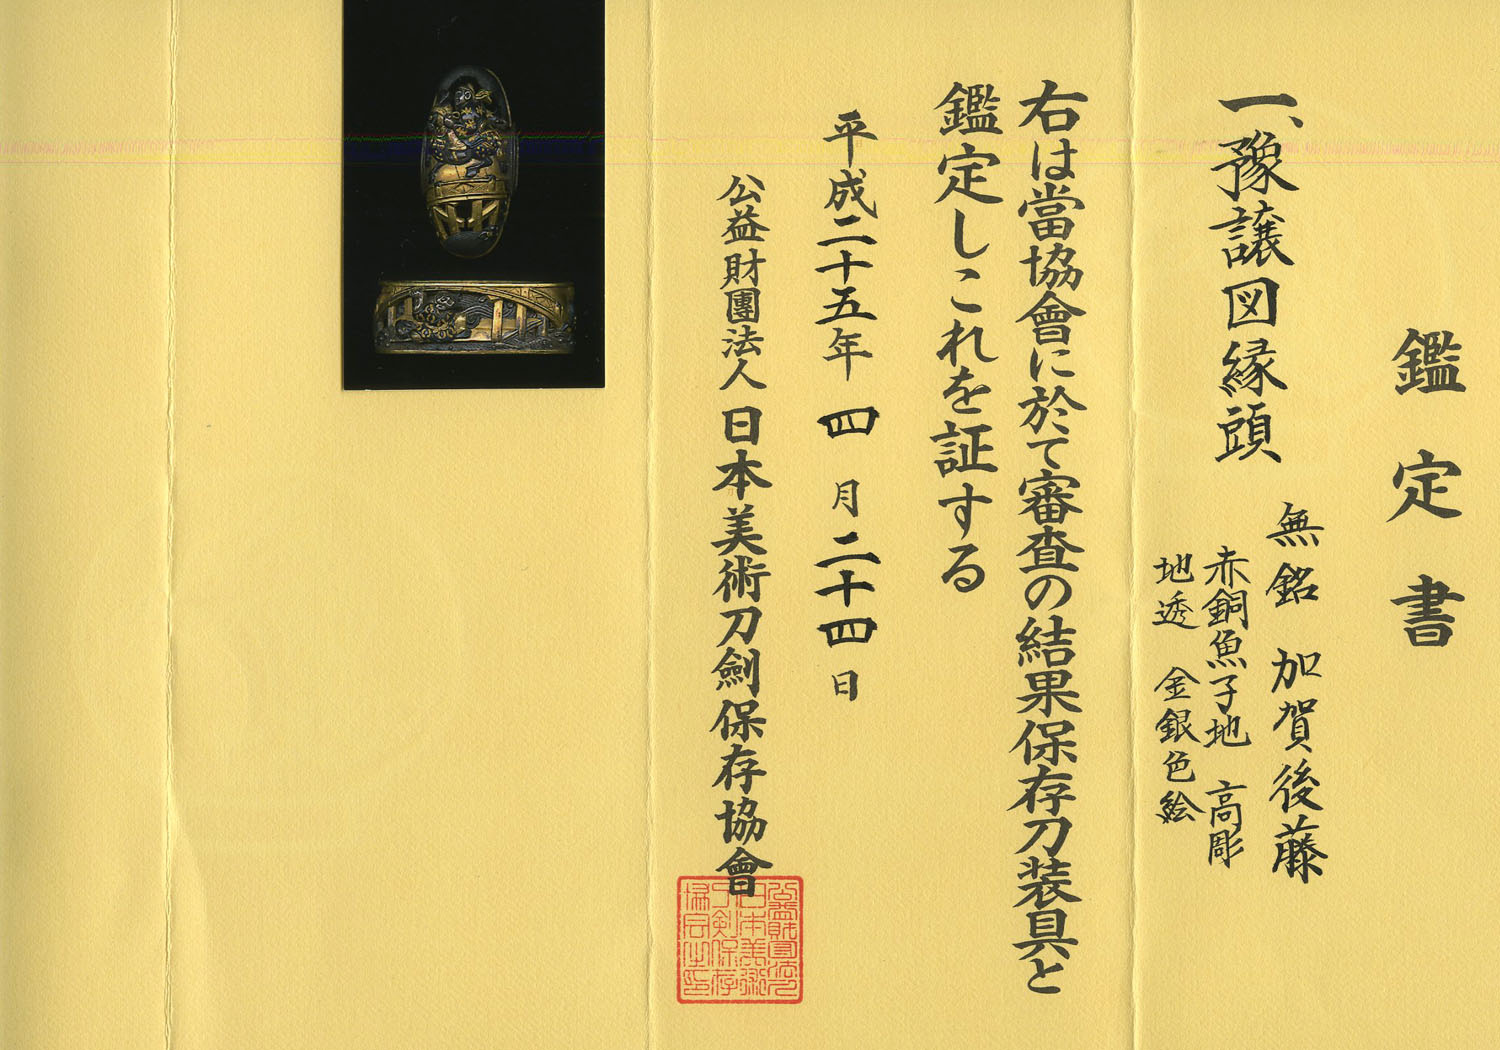 鑑定書
一、豫譲図縁頭
無銘 加賀後藤
赤銅魚子地 高彫
地透 金銀色絵
右は當協會に於て審査の結果保存刀装具と
鑑定しこれを証する
平成二十五年 四 月 二十四 日
公益財團法人 日本美術刀劍保存協會